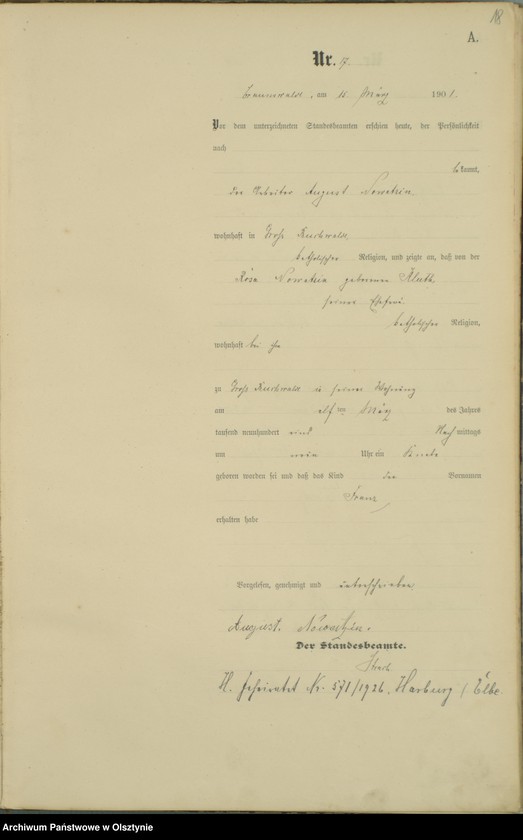 18
A.
Nr. 17.
Braunswalde, am 15 März 1901.
Vor dem unterzeichneten Standesbeamten erschien heute, der Persönlichkeit
nach
bekannt,
der Arbeiter August
wohnhaft in Groß Buchwalde,
katholischer Religion, und zeigte an, daß von der
Rosa geborenen
seiner Ehefrau
katholischer Religion,
wohnhaft bei ihm
zu Groß Buchwalde in seiner Wohnung
am elften März des Jahres
tausend neunhundert eins Nachmittags
um neun Uhr ein Knabe
geboren worden sei und daß das Kind den Vornamen
Franz
erhalten habe
Vorgelesen, genehmigt und unterschrieben
August.
Der Standesbeamte.
H. Geheiratet Nr. 571/1926. Harburg / Elbe
Archiwum Państwowe w Olsztynie